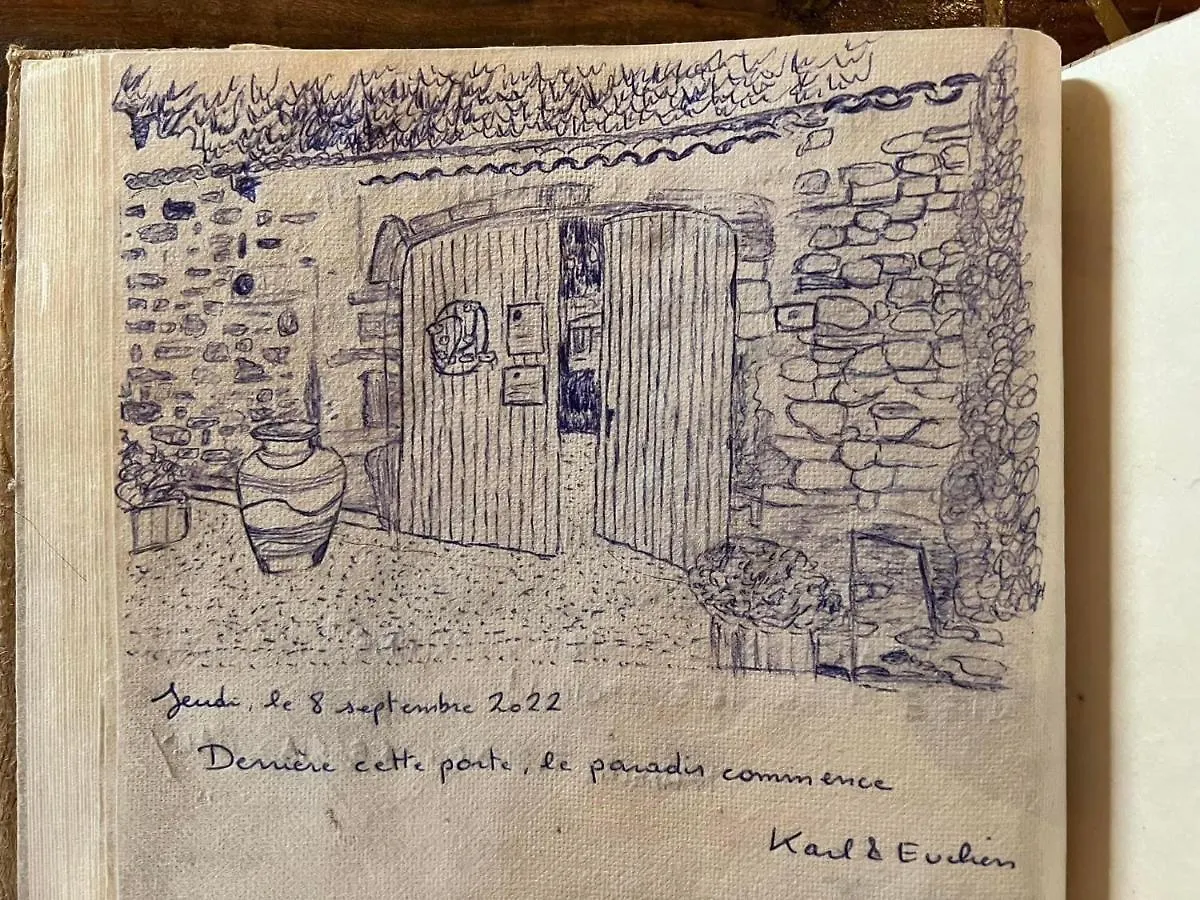 Jeudi, le 8 septembre 2022
Derrière cette porte, le paradis commence
Karl &